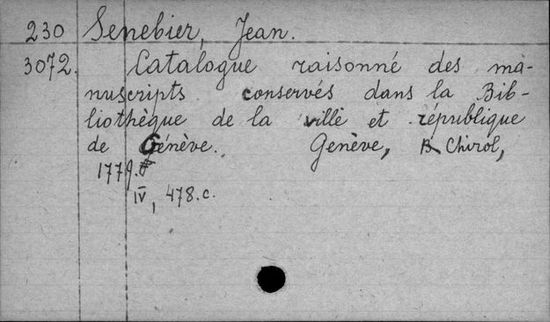 230 Senebier, Jean.
3072. Catalogue raisonné des ma-
nuscripts conservés dans la Bib-
liothèque de la ville et république
de Génève. Genève, B. Chirol,
1779.
IV, 478.c.